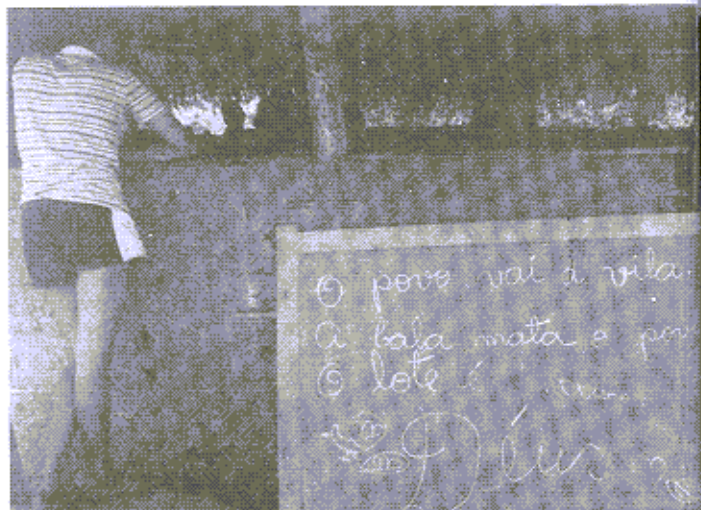 O povo vai à vila.
A bala mata o pov
O lote é
Déus